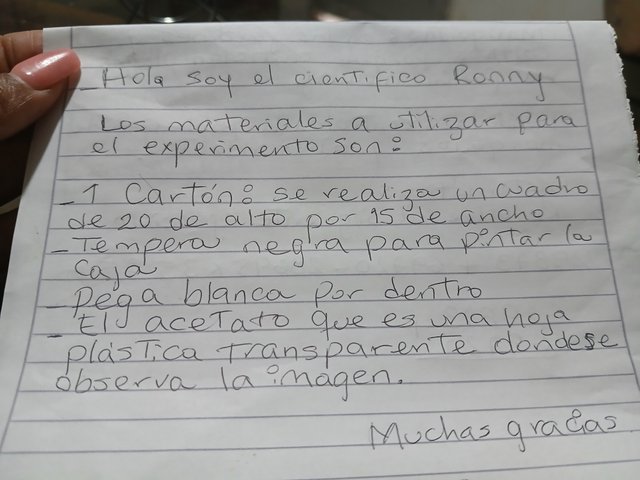 _ Hola soy el cientifico Ronny
Los materiales a utilizar para
el experimento son:
_ 1 Cartón: se realiza un cuadro
de 20 de alto por 15 de ancho
_ Tempera negra para pintar la
caja
_ pega blanca por dentro
_ El acetato que es una hoja
plástica transparente donde se
observa la imagen.
Muchas gracias.